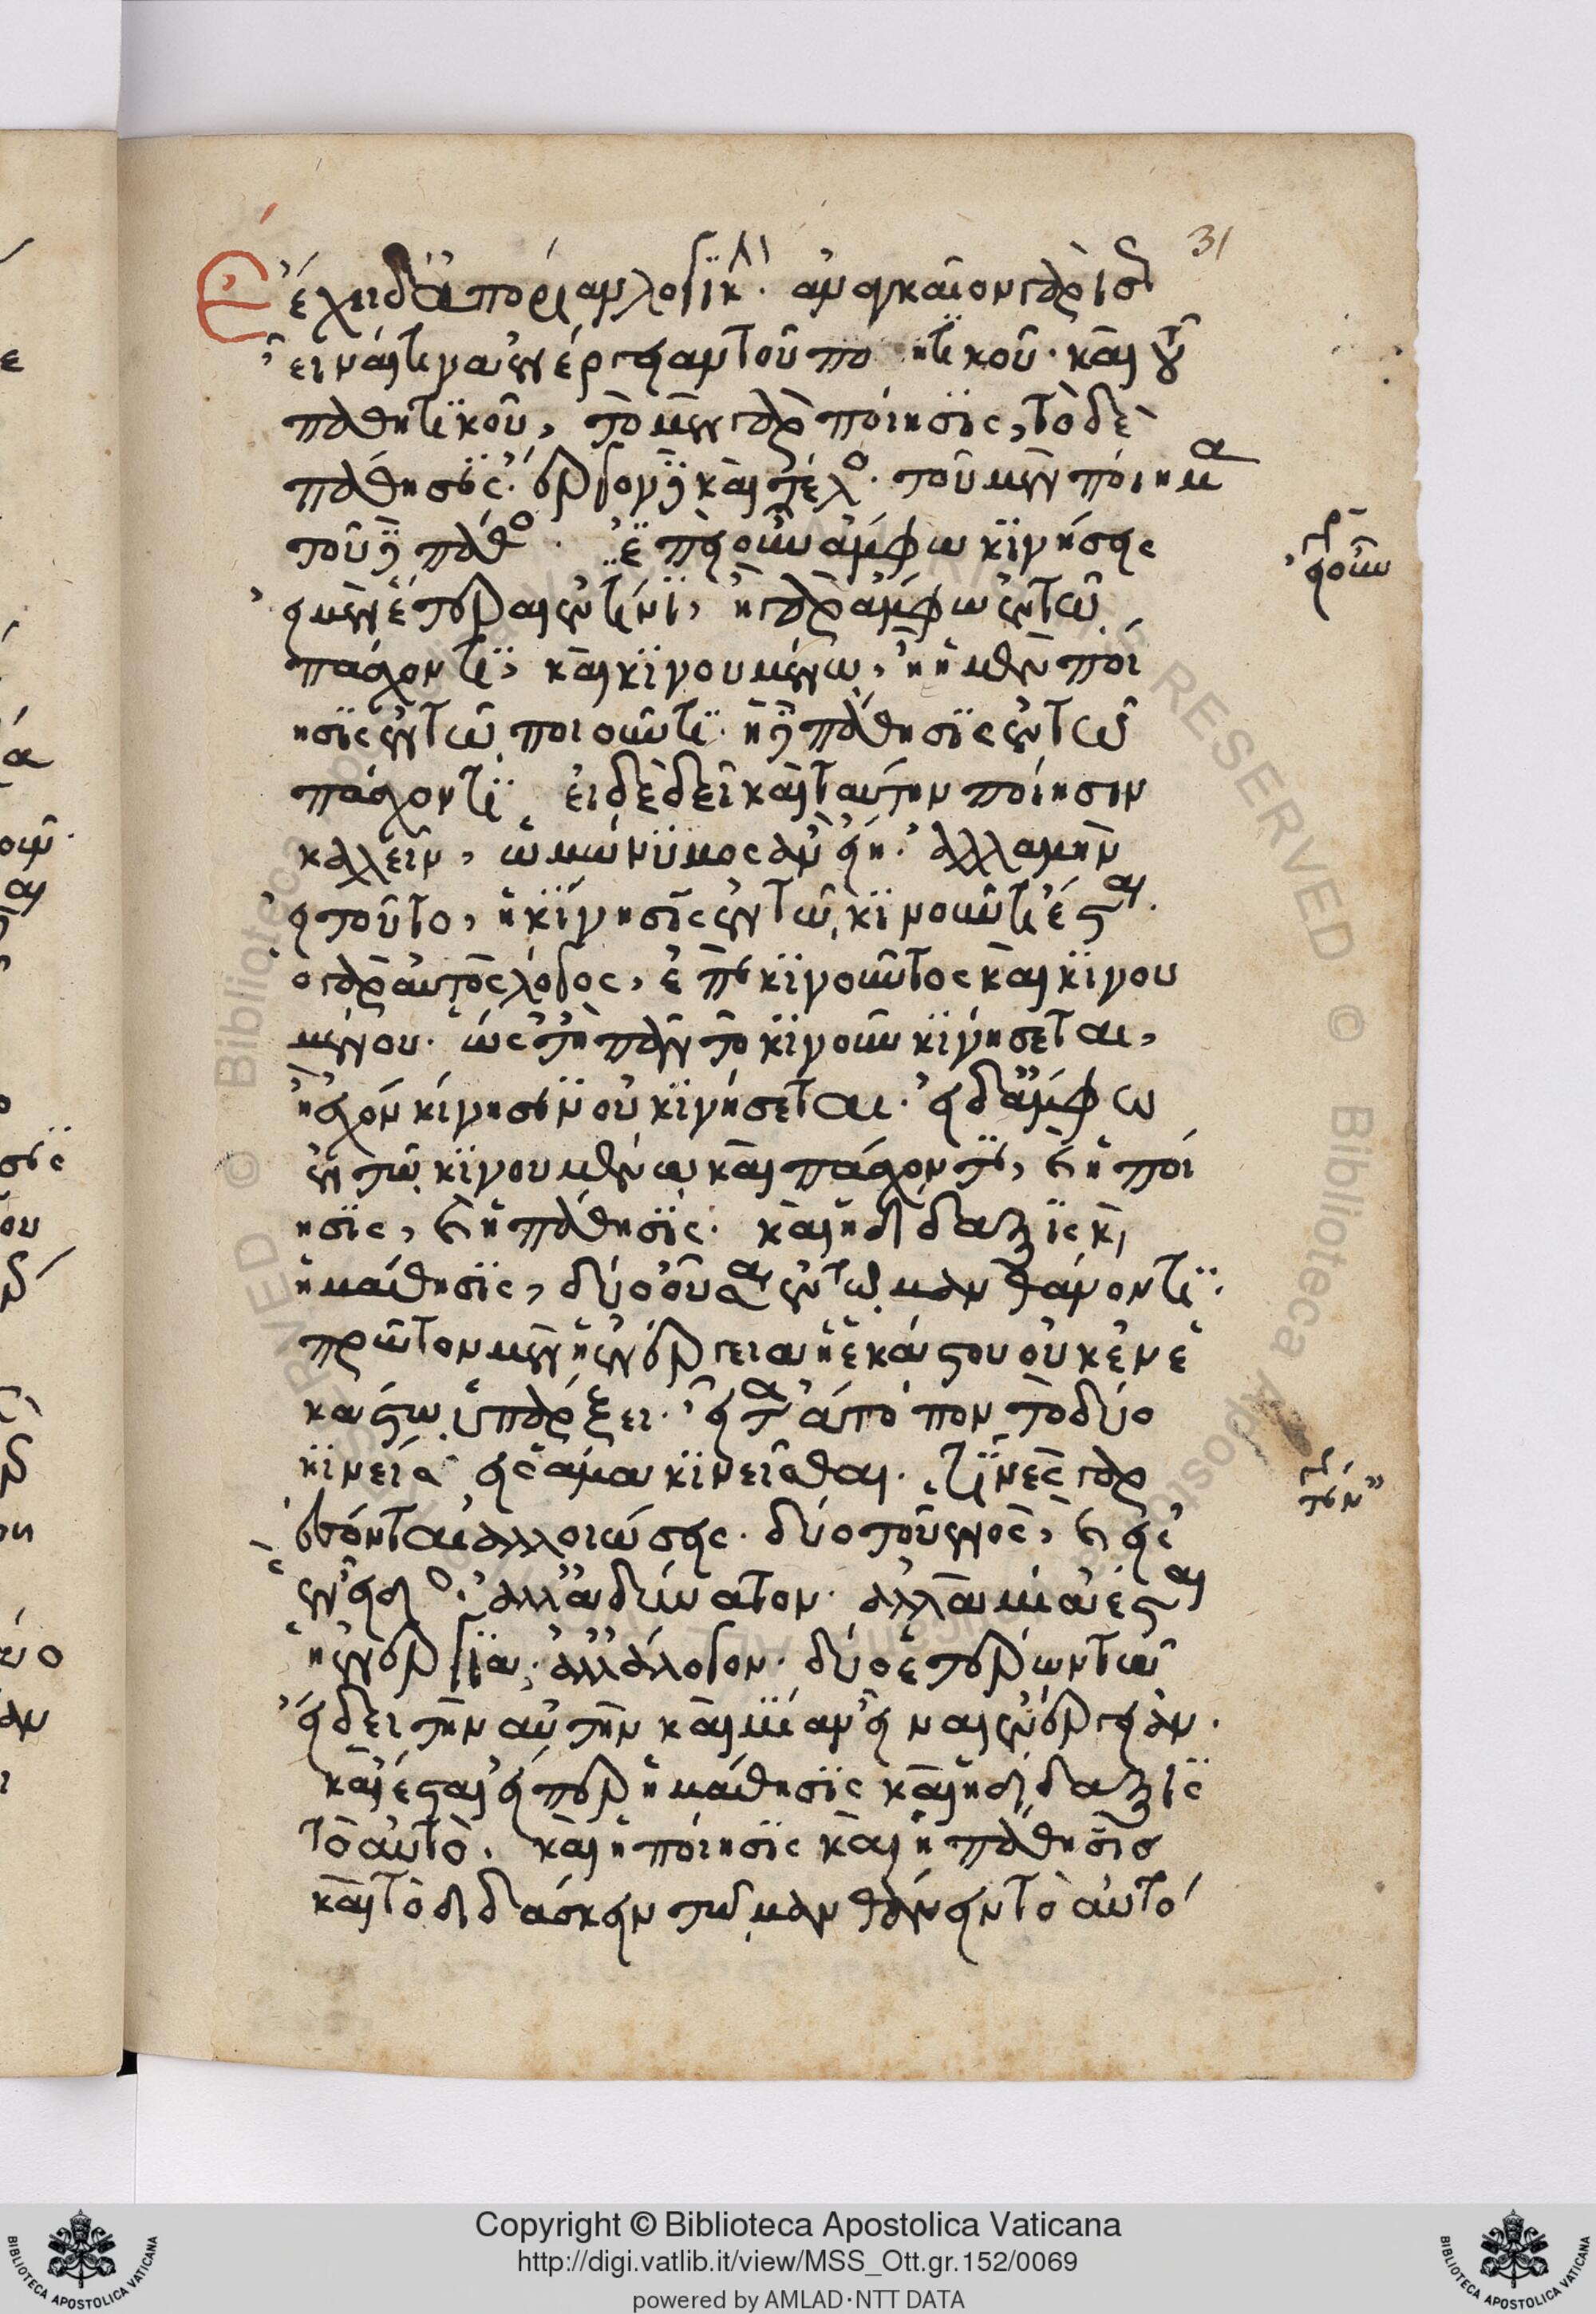 31
Ἔχει δ' ἀπορίαν λογικ(ήν)· ἀναγκαῖον γὰρ ἴσως
εἶναί τινα ἐνέργειαν τοῦ ποιητικοῦ· καὶ τοῦ
παθητικοῦ, τὸ μὲν γὰρ ποίησις, τὸ δὲ
πάθησις· ἔργον δὲ καὶ τέλος· τοῦ μὲν ποίημα
τοῦ δὲ πάθος· ἐπεὶ οὖν ἄμφω κινήσεις
εἰ μὲν ἕτεραι ἐν τίνι, ἢ γὰρ ἄμφω ἐν τῶ
πάσχοντι, καὶ κινουμένω, ἢ ἡ μὲν ποί
ησις ἐν τῶ ποιοῦντι· ἡ δὲ πάθησις ἐν τῶ
πάσχοντι εἰ δὲ δεῖ καὶ ταύτην ποίησιν
καλεῖν, ὁμώνυμος ἂν εἴη· ἀλλὰ μὴν
εἰ τοῦτο, ἡ κίνησις ἐν τῶ κινοῦντι ἔσται·
ὁ γὰρ αὐτὸς λόγος, ἐπὶ κινοῦντος καὶ κινου
μένου· ὥστ' ἢ πᾶν τὸ κινοῦν κινήσεται,
ἢ ἔχον κίνησιν οὐ κινήσεται· εἰ δ' ἄμφω
ἐν τῶ κινουμένω καὶ πάσχοντι, καὶ ἡ ποί
ησις, καὶ ἡ πάθησις· καὶ ἡ δίδαξις καὶ
ἡ μάθησις, δύο οὖσαι ἐν τῶ μανθάνοντι·
πρῶτον μὲν ἡ ἐνέργεια ἡ ἑκάστου οὐκ ἐν ἑ
κάστω ὑπάρξει· εἶτα ἄτοπον τὸ δύο
κινήσεις ἅμα κινεῖσθαι· τίνες γὰρ
ἔσονται ἀλλοιώσεις· δύο τοῦ ἑνὸς, καὶ εἰς
ἓν εἶδος· ἀλλ' ἀδύνατον· ἀλλὰ μία ἔσται
ἡ ἐνέργεια· ἀλλ' ἄλογον· δύο ἑτέρων τῶ
εἴδει τὴν αὐτὴν καὶ μίαν εἶναι ἐνέργειαν·
καὶ ἔσται εἴπερ ἡ μάθησις καὶ ἡ δίδαξις
τὸ αὐτὸ· καὶ ἡ ποίησις καὶ ἡ πάθησις
καὶ τὸ διδάσκειν τῶ μανθάνειν τὸ αὐτό
Copyright © Biblioteca Apostolica Vaticana
http://digi.vatlib.it/view/MSS_Ott.gr.152/0069
powered by AMLAD·NTT DATA
BIBLIOTECA APOSTOLICA VATICANA
BIBLIOTECA APOSTOLICA VATICANA